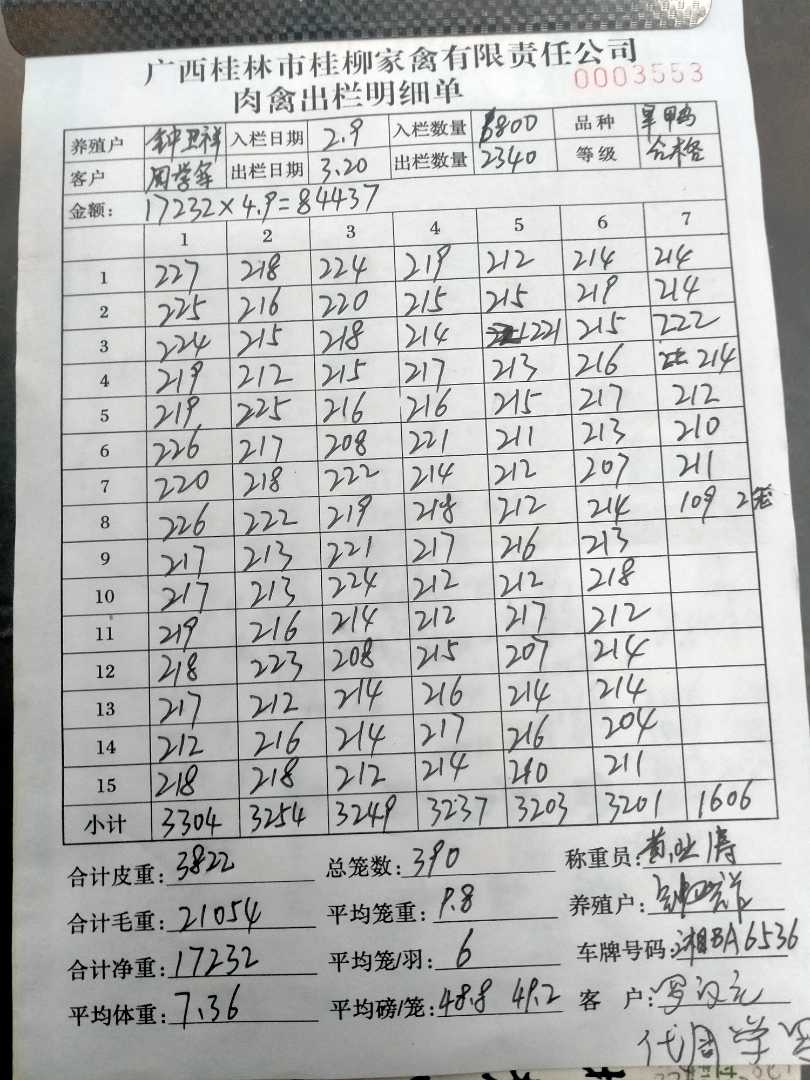 广西桂林市桂柳家禽有限责任公司
0003553
肉禽出栏明细单
养殖户 钟卫祥 入栏日期 2.9 入栏数量 6800 品种 旱甲鸭
客户 周学军 出栏日期 3.20 出栏数量 2340 等级 合格
金额: 17232×4.9=84437
1 2 3 4 5 6 7
1 227 218 224 219 212 214 214
2 225 216 220 215 215 219 214
3 224 215 218 214 221 215 222
4 219 212 215 217 213 216 214
5 219 225 216 216 215 217 212
6 226 217 208 221 211 213 210
7 220 218 222 214 212 207 211
8 226 222 219 218 212 214 109 2笼
9 217 213 221 217 216 213
10 217 213 224 212 212 218
11 219 216 214 212 217 212
12 218 223 208 215 207 214
13 217 212 214 216 214 214
14 212 216 214 217 216 204
15 218 218 212 214 210 211
小计 3304 3254 3249 3237 3203 3201 1606
合计皮重: 3822 总笼数: 390 称重员:
合计毛重: 21054 平均笼重: 9.8 养殖户: 钟卫祥
合计净重: 17232 平均笼/羽: 6 车牌号码: 湘BA6536
平均体重: 7.36 平均磅/笼: 48.8 49.2 客 户:
代周学军